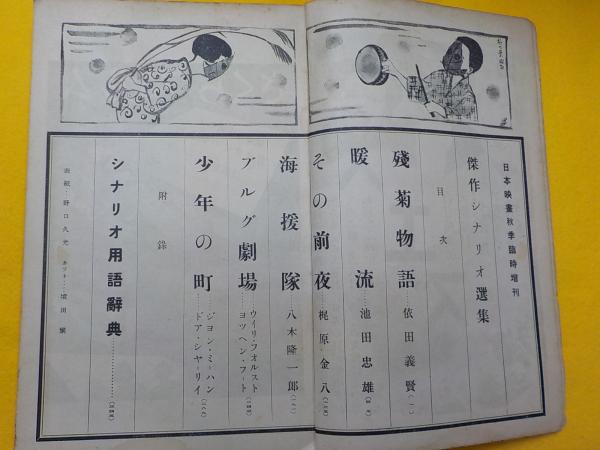 日本映畫秋季臨時増刊
傑作シナリオ選集
目次
殘菊物語……依田義賢(一)
暖流……池田忠雄
その前夜……梶原金八
海援隊……八木隆一郎
ブルグ劇場……ウイリ・フオルスト
ヨツヘン・フート
少年の町……ジヨン・ミーハン
ドア・シヤーリイ
附錄
シナリオ用語辭典……
表紙・野口久光 カツト……